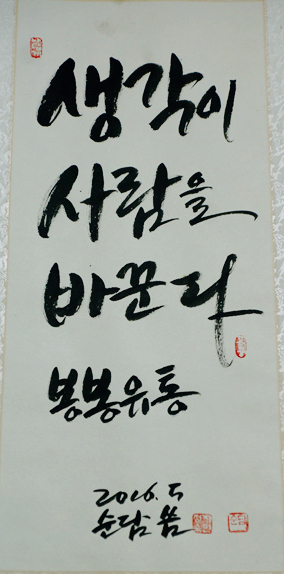 생각이
사람을
바꾼다
봉봉유통
2016. 5
순담 씀